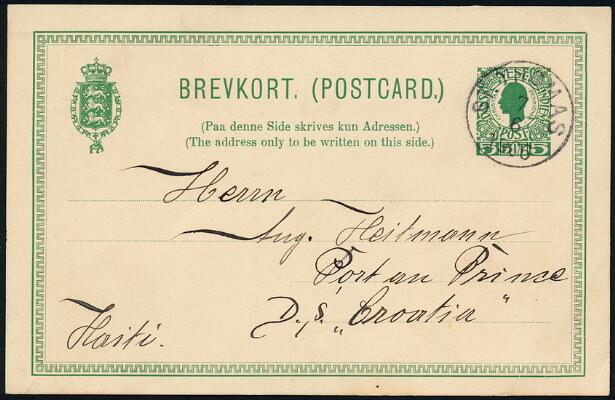 BREVKORT. (POSTCARD.)
(Paa denne Side skrives kun Adressen.)
(The address only to be written on this side.)
POST
5 5
7
6
Herrn
Aug. Heitmann
Port au Prince
D. S. „Croatia"
Haiti.